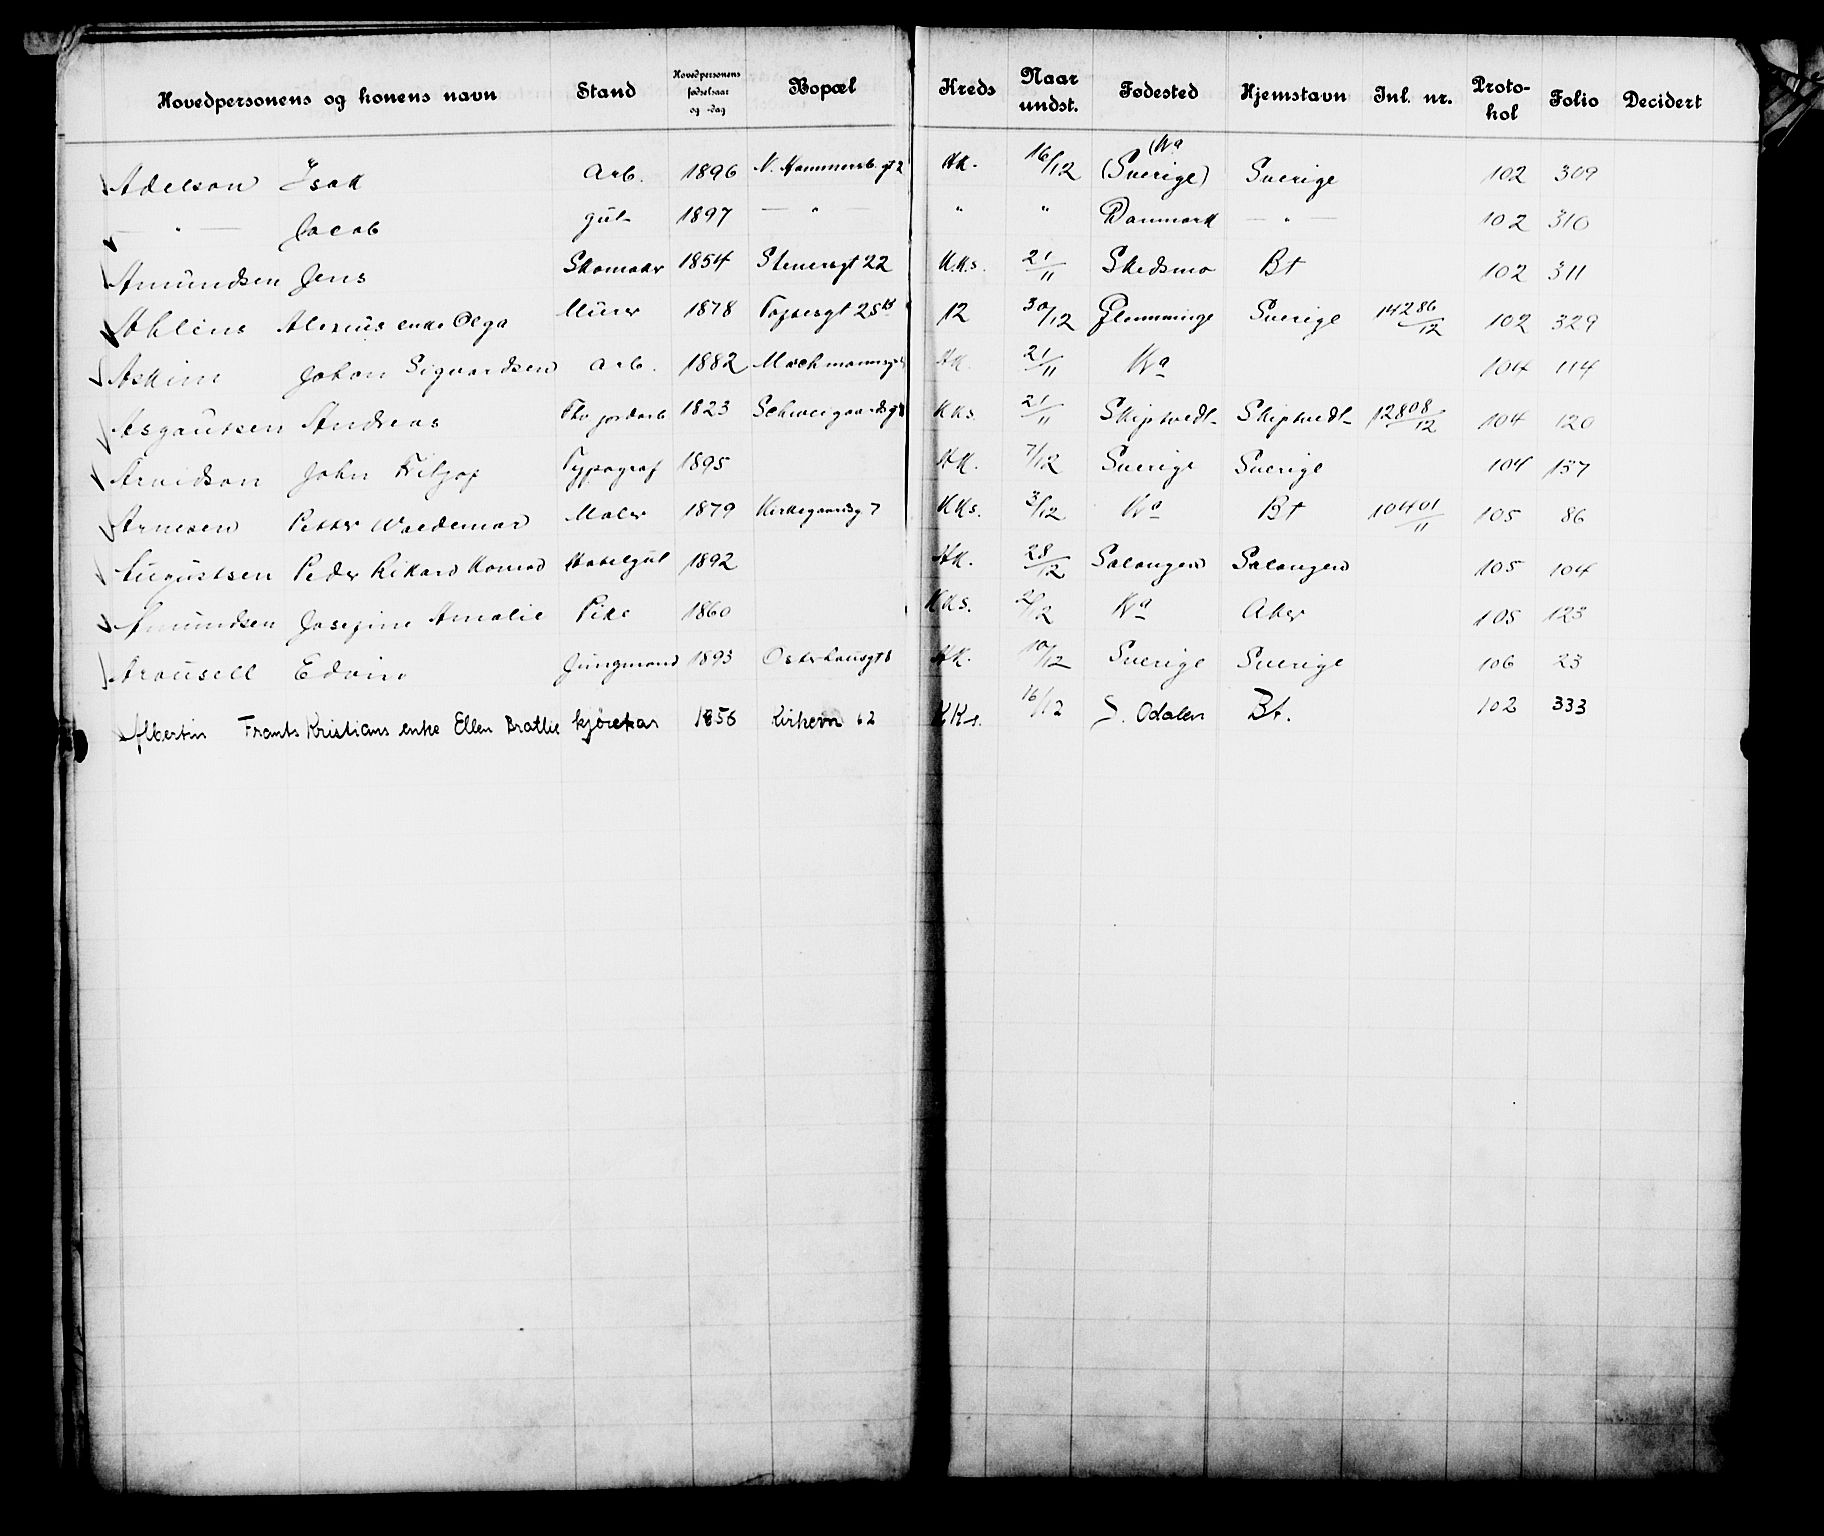 Hovedpersonens og konens navn Stand Hovedpersonens fødselsaar og -dag Bopæl Kreds Naar undst. Fødested Hjemstavn Inl. nr. Protokol Folio Decidert
Adelson Isak Arb. 1896 N. Hammersb. gt 2 KK. 16/12 Kra (Sverige) Sverige 102 309
— " — Jacob gut 1897 — " — " " Danmark — " — 102 310
Amundsen Jens Skomaker 1854 Stenersgt 22 KKs. 21/11 Skedsmo Bt 102 311
Ahlins enke Olga Murer 1878 12 30/12 Glemminge Sverige 14286/12 102 329
Askim Johan Sigvardsen Arb. 1882 KK. 21/11 Kra 104 114
Asgautsen Andreas 1823 Schweigaardsgt KKs. 21/11 Skiptvedt Skiptvedt 12808/12 104 120
Arvidson John Typograf 1895 KK. 7/12 Sverige Sverige 104 157
Arnesen Petter Waldemar Maler 1879 Kirkegaardsg 7 KKs. 3/12 Kra Bt 10401/11 105 86
Augustsen Peder Rikard Konrad Hotelgut 1892 KK. 28/12 Salangen Salangen 105 104
Amundsen Josefine Amalie Pike 1860 KKs. Kra Aker 105 123
Arousell Edvin Jungmand 1893 Osterhausgt 8 KK. 10/12 Sverige Sverige 106 23
Albertin Frants Kristians enke Ellen Bratlie kjørekar 1856 Kirkevn 62 KKs. 16/12 S. Odalen Bt. 102 333